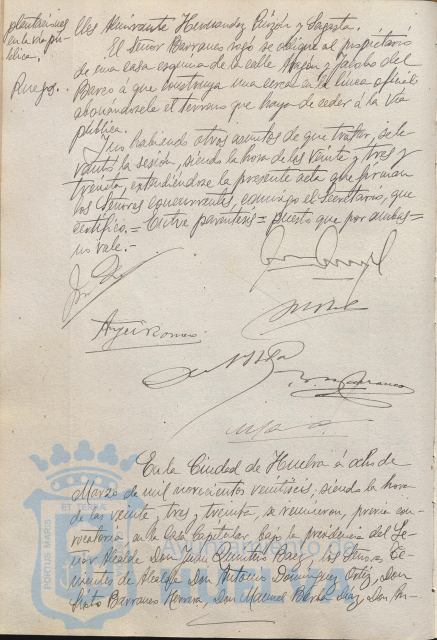 plantaciones
en la vía pú-
blica.
Ruegos.
lles Almirante Hernandez Pinzón y Sagasta.
El Señor Barranco rogó se obligue al propietario
de una casa esquina de la calle Rascón y Jacobo del
Barco á que construya una cerca en la línea oficial
abonándosele el terreno que haya de ceder á la vía
pública.
Y no habiendo otros asuntos de que tratar, se le-
vantó la sesión, siendo la hora de las veinte y tres y
treinta, extendiéndose la presente acta que firman
los Señores concurrentes, conmigo el Secretario, que
certifico.= Entre parentesis = puesto que por ambas =
no vale.-
En la Ciudad de Huelva á ocho de
Marzo de mil novecientos veintiseis, siendo la hora
de las veinte, tres, treinta, se reunieron, previa con-
vocatoria, en la Casa Capitular, bajo la presidencia del Se-
ñor Alcalde Don Juan Quintero Baez, los Señores Te-
nientes de Alcalde Don Antonio Domínguez Ortiz, Don
Sixto Barranco Herrera, Don Manuel Díaz, Don An-
PORTUS MARIS
ET TERRA
Ayuntamiento de